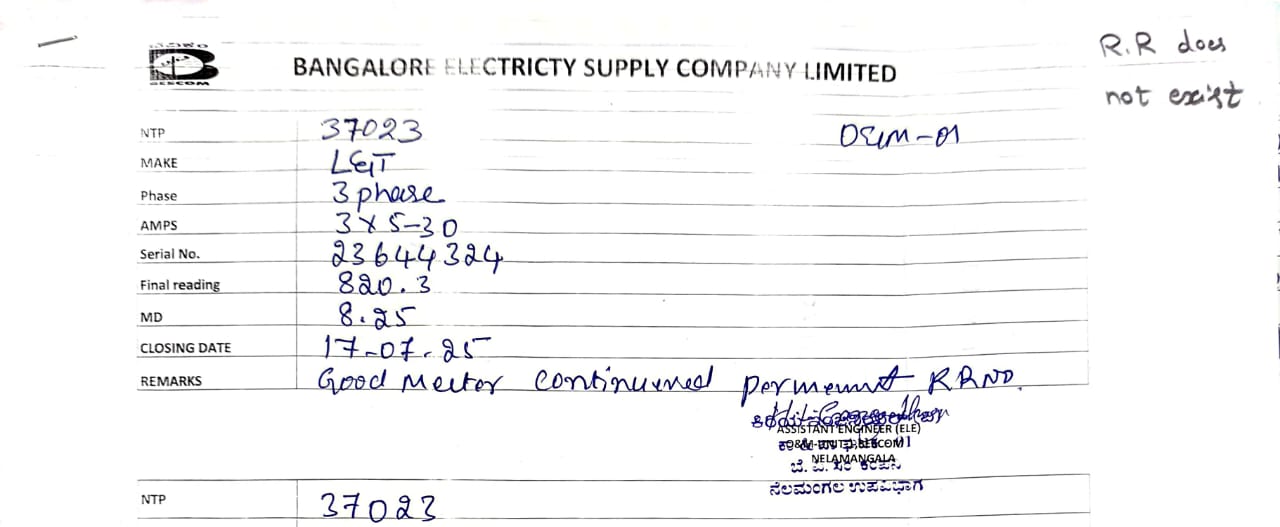 R.R does
not exist
BESCOM
BANGALORE ELECTRICTY SUPPLY COMPANY LIMITED
NTP 37023 O&M-01
MAKE L&T
Phase 3 phase
AMPS 3 X 5-30
Serial No. 23644324
Final reading 820.3
MD 8.25
CLOSING DATE 17-07-25
REMARKS Good Meter continued RRNO.
ASSISTANT ENGINEER (ELE)
O&M-UNIT-1, BESCOM
NELAMANGALA
ಬೆ. ವಿ. ಸ. ಕಂಪನಿ
ನೆಲಮಂಗಲ ಉಪವಿಭಾಗ
NTP 37023